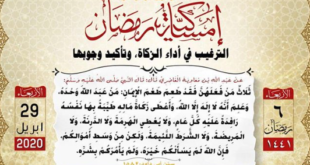 إمساكية رمضان
الترغيب في أداء الزكاة، وتأكيد وجوبها
عن عبد الله بن معاوية الغاضري قال: قال النبي صلى الله عليه وسلم:
ثلاث من فعلهن فقد طعم طعم الإيمان: من عبد الله وحده،
وعلم أنه لا إله إلا الله، وأعطى زكاة ماله طيبة بها نفسه
رافدة عليه كل عام، ولا يعطي الهرمة ولا الدرنة، ولا
المريضة، ولا الشرط اللئيمة، ولكن من وسط أموالكم،
فإن الله لم يسألكم خيره، ولم يأمركم بشره.
الأربعاء
٦
رمضان
١٤٤١
الأربعاء
29
ابريل
2020